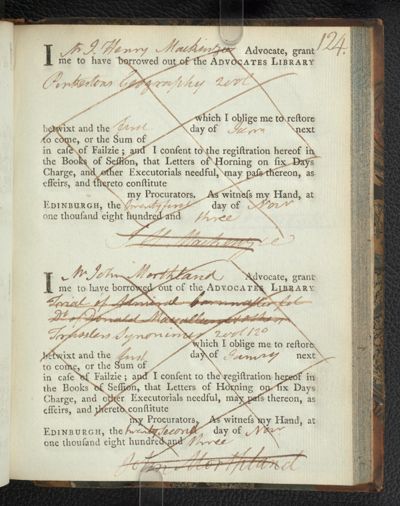 124.
I Mr J. Henry Mackenzie Advocate, grant
me to have borrowed out of the ADVOCATES LIBRARY
Pinkertons Geography 2 vol
which I oblige me to restore
betwixt and the first day of next
to come, or the Sum of
in case of Failzie; and I consent to the registration hereof in
the Books of Session, that Letters of Horning on six Days
Charge, and other Executorials needful, may pass thereon, as
effeirs, and thereto constitute
my Procurators. As witness my Hand, at
EDINBURGH, the twenty first day of Novr
one thousand eight hundred and three
J. H. Mackenzie
I Mr John Morthland Advocate, grant
me to have borrowed out of the ADVOCATES LIBRARY
Trial of
Do of Donald
Synonimes 2 vol 12o
which I oblige me to restore
betwixt and the first day of next
to come, or the Sum of
in case of Failzie; and I consent to the registration hereof in
the Books of Session, that Letters of Horning on six Days
Charge, and other Executorials needful, may pass thereon, as
effeirs, and thereto constitute
my Procurators. As witness my Hand, at
EDINBURGH, the twenty second day of Novr
one thousand eight hundred and three
John Morthland